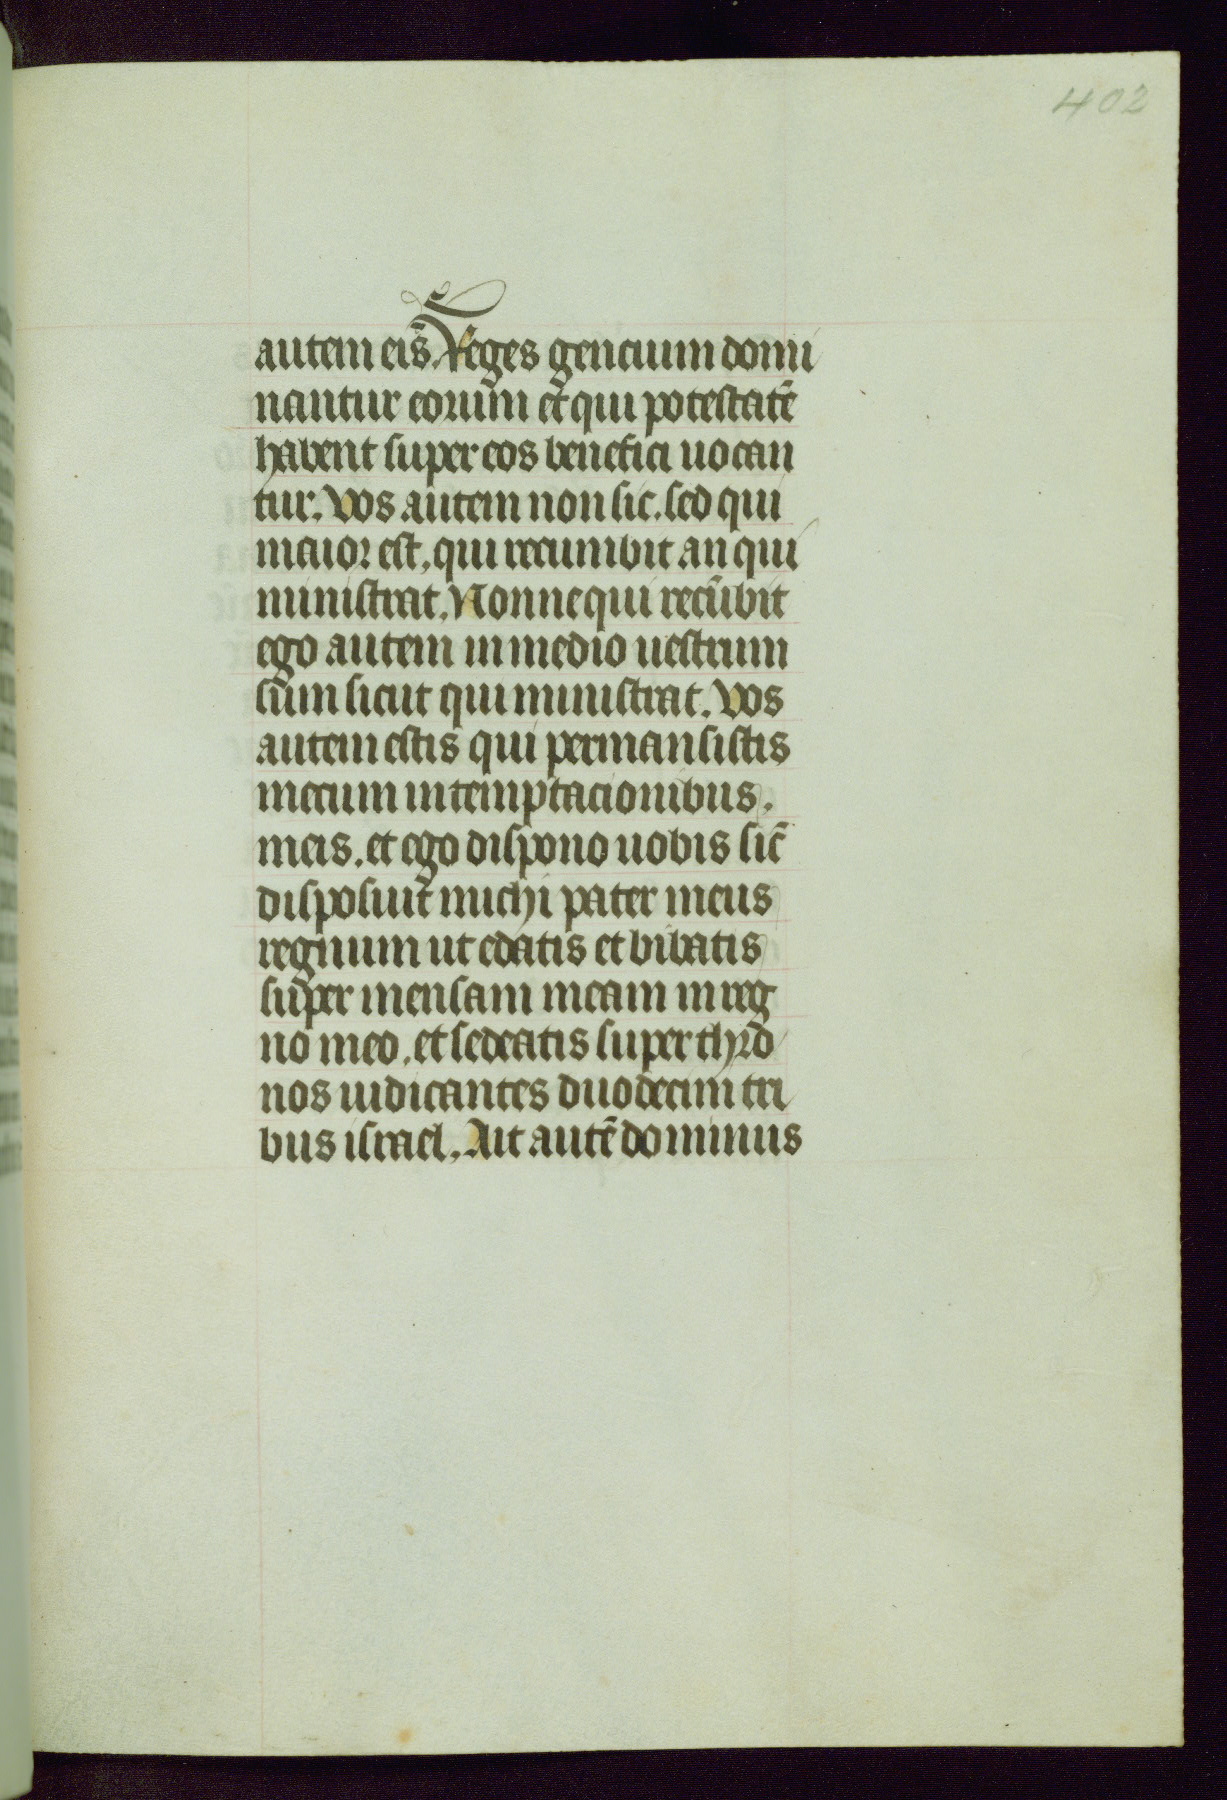 402
autem eis. Reges gencium domi
nantur eorum et qui potestatē
habent super eos benefici uocan
tur. Vos autem non sic. sed qui
maior est. qui recumbit an qui
ministrat. Nonne qui recūbit
ego autem in medio uestrum
sum sicut qui ministrat. Vos
autem estis qui permansistis
mecum in temptacionibus.
meis. et ego dispono uobis sic̄
disposuit michi pater meus
regnum ut edatis et bibatis
super mensam meam in reg
no meo. et sedeatis super thro
nos iudicantes duodecim tri
bus israel. Ait autē dominus